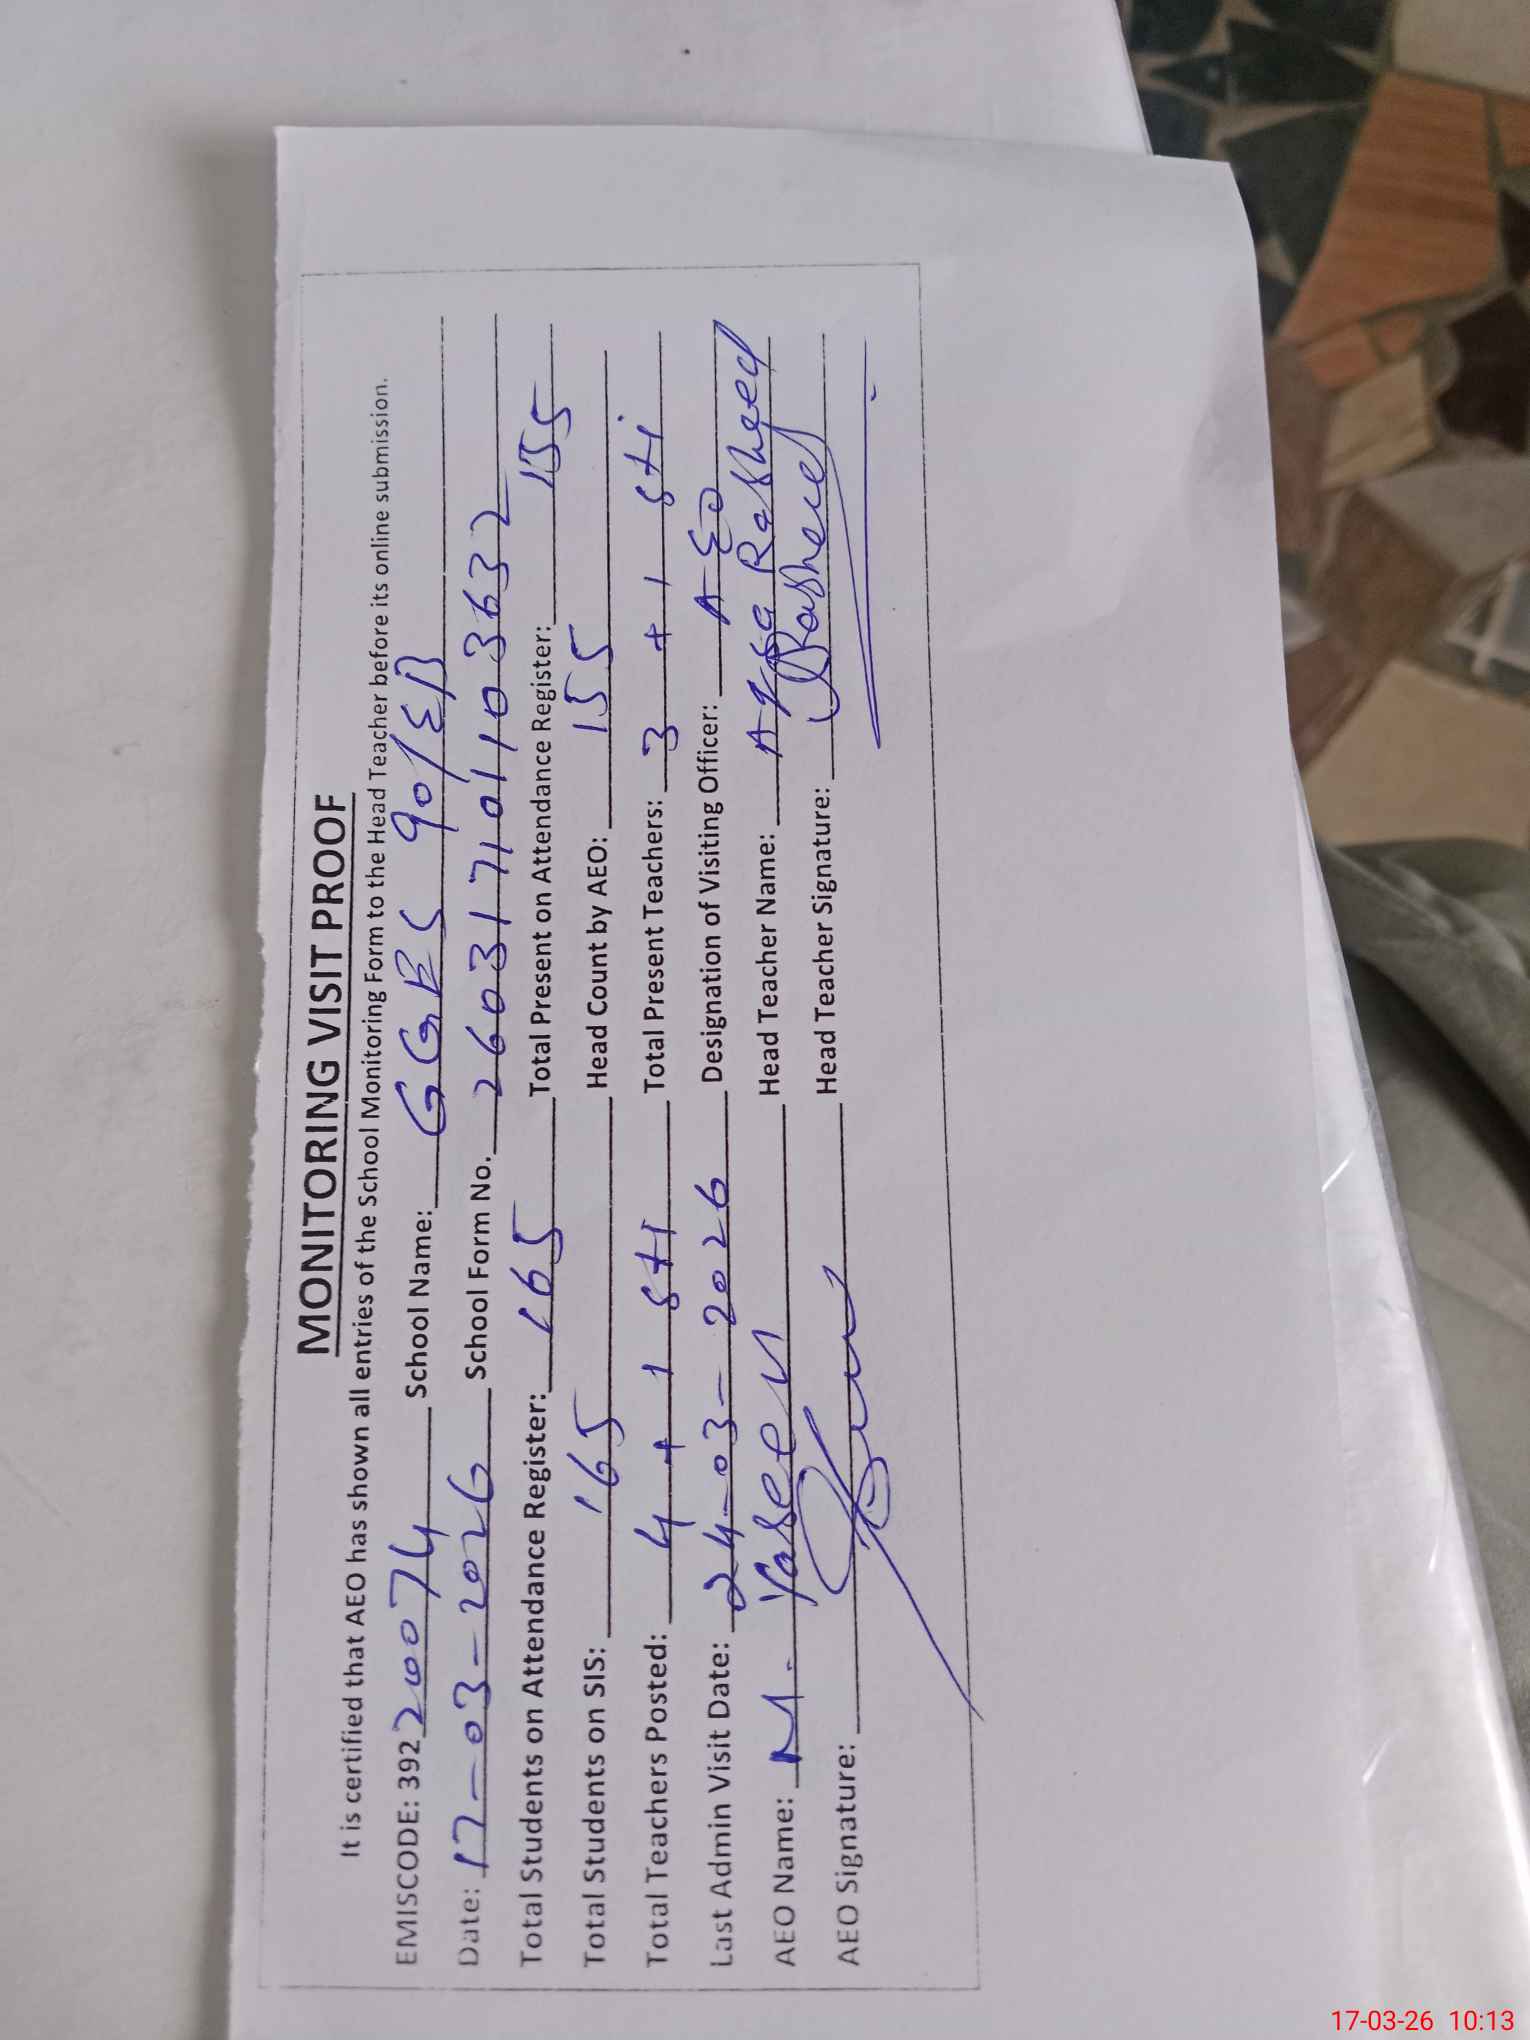 MONITORING VISIT PROOF
It is certified that AEO has shown all entries of the School Monitoring Form to the Head Teacher before its online submission.
EMISCODE: 39220074 School Name: GGES 90/EB
Date: 17-03-2026 School Form No. 260317101103632
Total Students on Attendance Register: 165 Total Present on Attendance Register: 155
Total Students on SIS: 165 Head Count by AEO: 155
Total Teachers Posted: 4 + 1 STI Total Present Teachers: 3 + 1 sti
Last Admin Visit Date: 24-03-2026 Designation of Visiting Officer: AEO
AEO Name: M. Yaseen Head Teacher Name: Aqsa Rasheed
AEO Signature: Head Teacher Signature: Rasheed
17-03-26 10:13